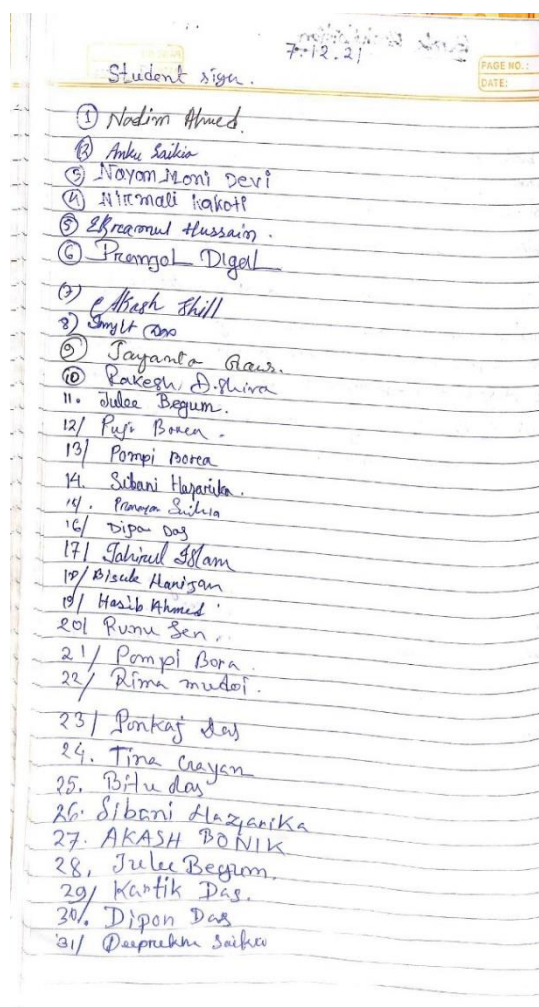 7.12.21
PAGE NO.:
DATE:
Student sign.
① Nadim Ahmed.
② Anku Saikia
③ Nayan Moni Devi
④ Nirmali Kakoti
⑤ Ekramul Hussain.
⑥ Pranjol Digal
(7) Akash Shill
8) Das
⑨ Jayanta
⑩ Rakesh
11. Julee Begum.
12/ Puja Borea.
13/ Pompi Borea
14. Sibani Hazarika.
Saikia
16/ Dipon Das
17/ Tahirul Islam
18/
19/ Hasib Ahmed
20/ Runu Sen.
21/ Pompi Bora.
22/ Rima mudoi.
23/ Ponkaj das
24. Tina Gayan
25. Bitu das
26. Sibani Hazarika
27. AKASH BONIK
28, Julee Begum.
29/ Kartik Das.
30/. Dipon Das
31/ Saikia